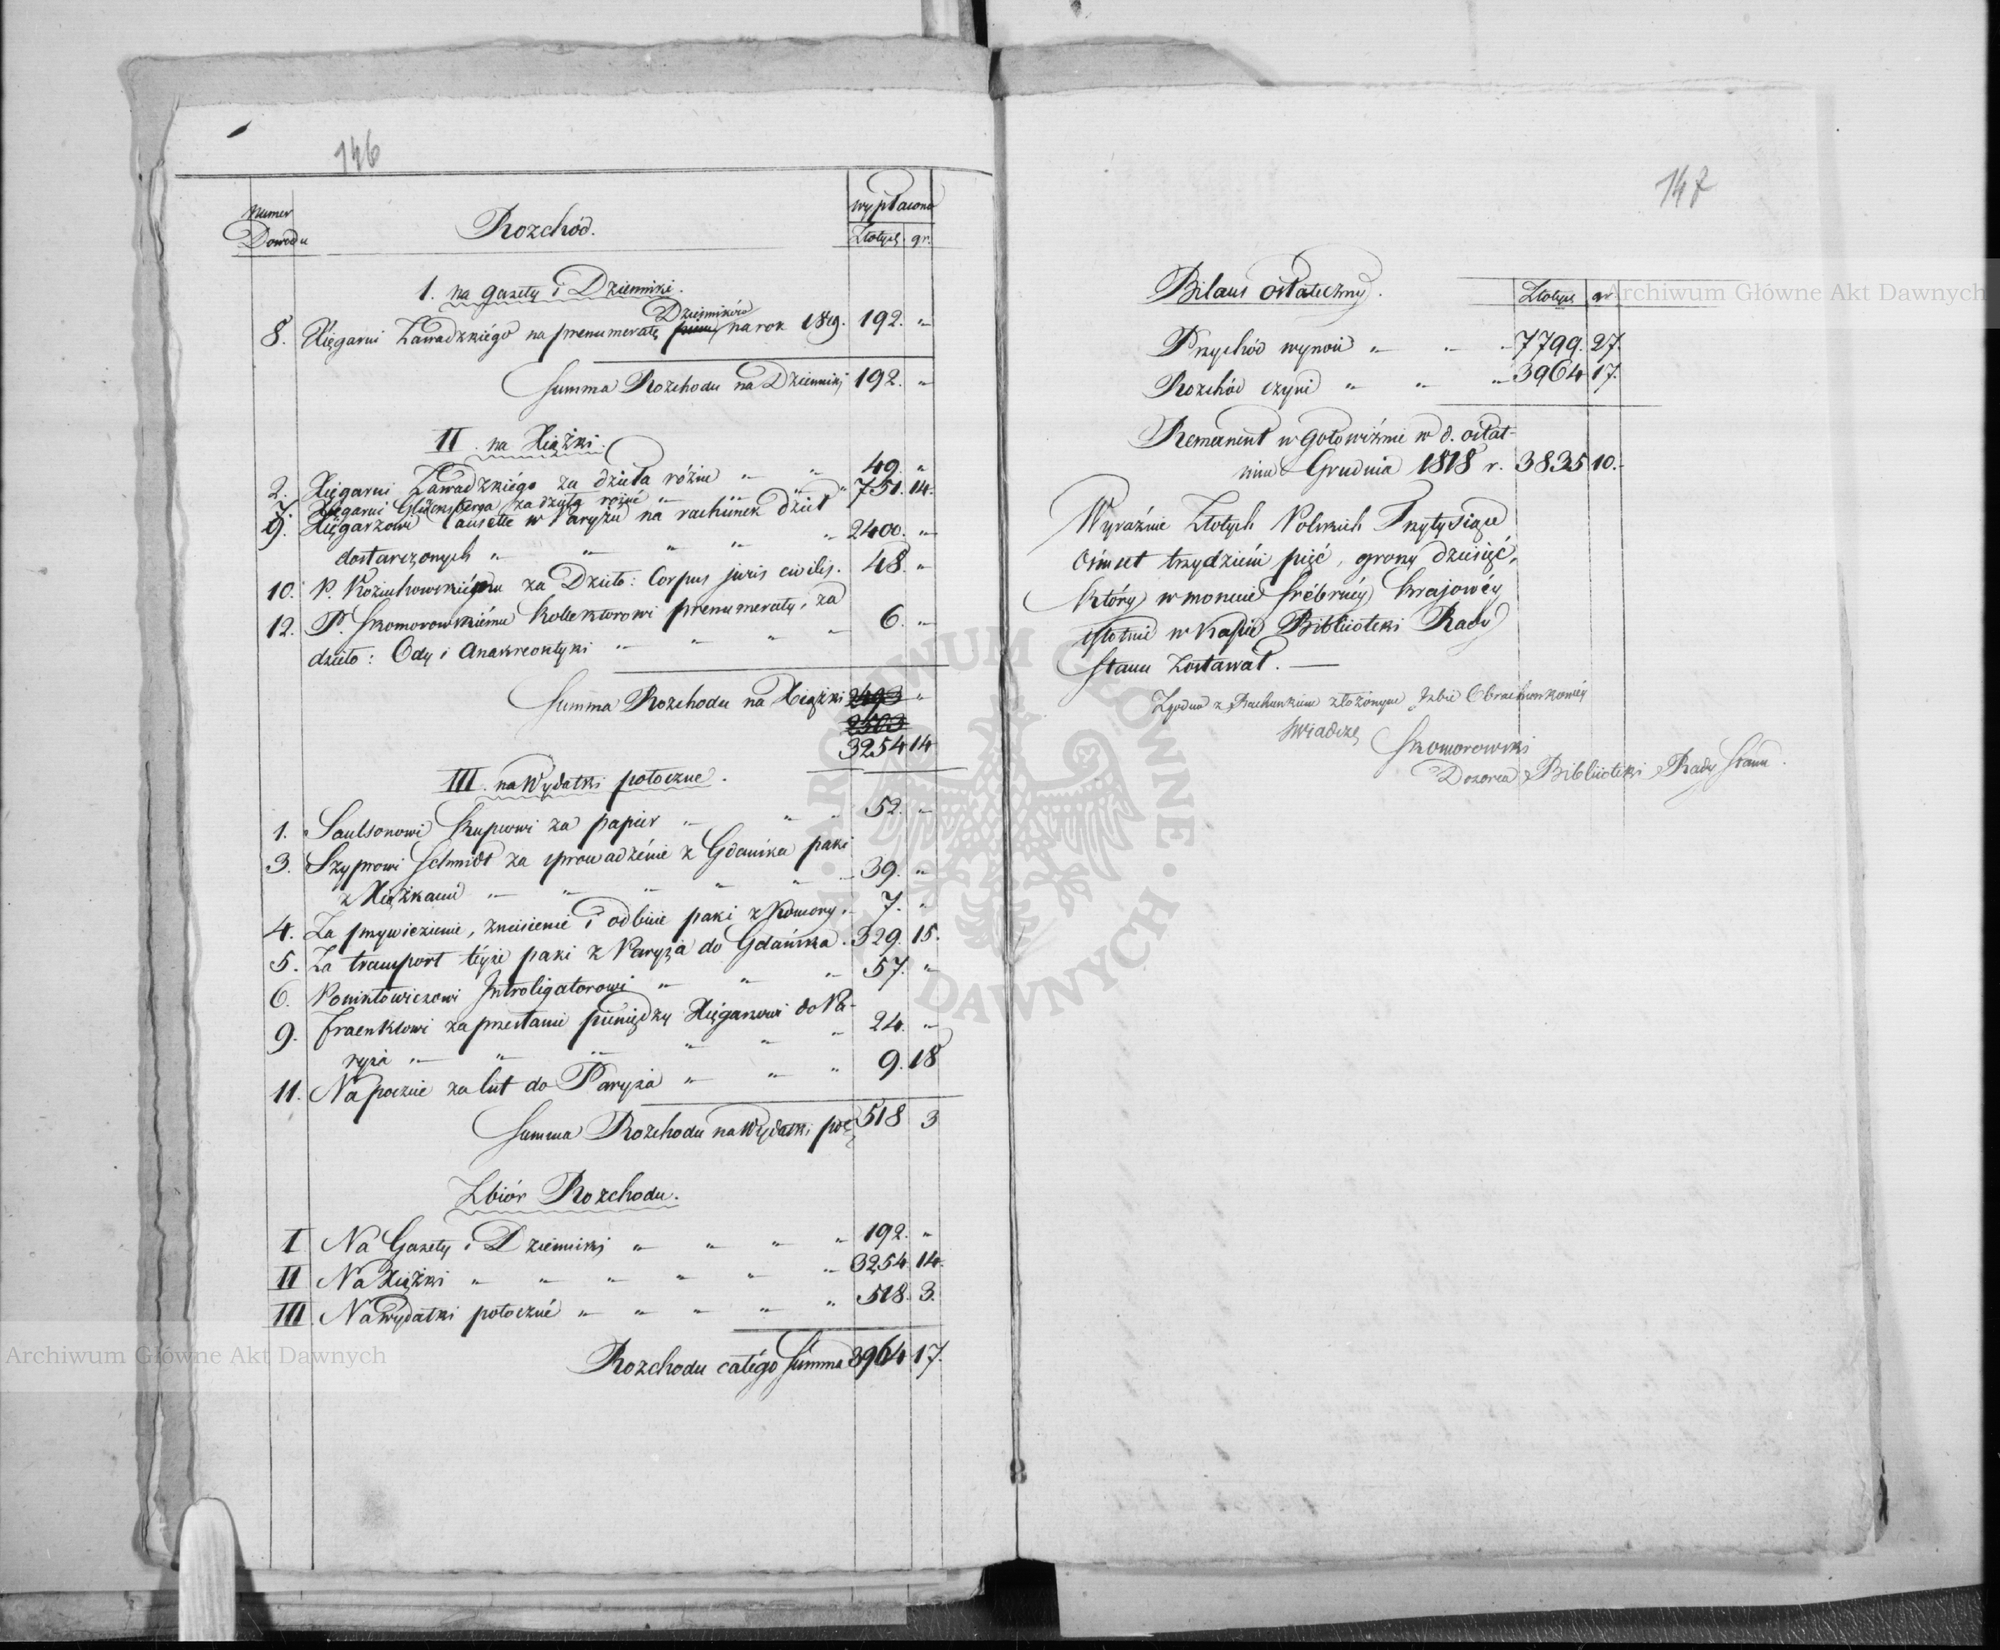 146
Numer
Dowodu
Rozchód.
wypłacono
Złotych. gr.
1. na gazety i Dzienniki.
8. Xięgarni Zawadzkiégo na prenumeratę Dzienników na rok 1819. 192. „
Summa Rozchodu na Dzienniki 192. „
II. na Xiążki.
2. Xięgarni Zawadzkiégo za dzieła różne „ „ 49. „
7. Xięgarni Glücksberga za dzieła różne „ „ „ 751. 14.
9. Xięgarzowi w Paryżu na rachunek dzieł
dostarczonych „ „ „ „ „ 2400. „
10. P. Koźuchowskiému za Dzieło: Corpus juris civilis. 48. „
12. P. Skomorowskiému Kollektorowi prenumeraty, za
dzieło: Ody i Anakreontyki „ „ „ „ 6. „
Summa Rozchodu na Xiążki 2493 „
2503
3254 14
III. na Wydatki potoczne.
1. Saulsonowi Kupcowi za papier „ „ „ 52. „
3. Szyprowi Schmidt za sprowadzénie z Gdańska paki
z Xiążkami „ „ „ „ „ 39. „
4. Za przywiezienie, zniesienie i odbicie paki z Komory. 7. „
5. Za transport téyże paki z Paryża do Gdańska. 329. 15.
6. Poniktowiczowi Introligatorowi „ „ „ 57. „
9. Fraenklowi za przesłanie pieniędzy Xięgarzowi do Pa-
ryża „ „ „ „ „ „ 24. „
11. Na poczcie za list do Paryża „ „ „ 9. 18
Summa Rozchodu na Wydatki pot: 518 3
Zbiór Rozchodu.
I Na Gazety i Dzienniki „ „ „ „ 192. „
II Na Xiążki „ „ „ „ „ „ 3254 14.
III Na Wydatki potoczné „ „ „ „ „ 518. 3.
Rozchodu całégo Summa 3964 17.
147
Bilans ostateczny.
Złotych gr.
Przychód wynosi „ „ „ 7799. 27.
Rozchód czyni „ „ „ 3964 17.
Remanent w gotowiźnie w d. ostat-
nim Grudnia 1818 r. 3835 10.
Wyraźnie Złotych Polskich Trzytysiące
Ośmset trzydzieści pięć, groszy dziesięć,
który w monecie srébrnéy krajowéy
istotnie w Kassie Biblioteki Rady
Stanu zostawał. —
Zgodno z Rachunkiem złożonym Izbie Obrachunkowéy
świadczę
Skomorowski
Dozorca Biblioteki Rady Stanu.
Archiwum Główne Akt Dawnych
Archiwum Główne Akt Dawnych
ARCHIWUM GŁÓWNE AKT DAWNYCH